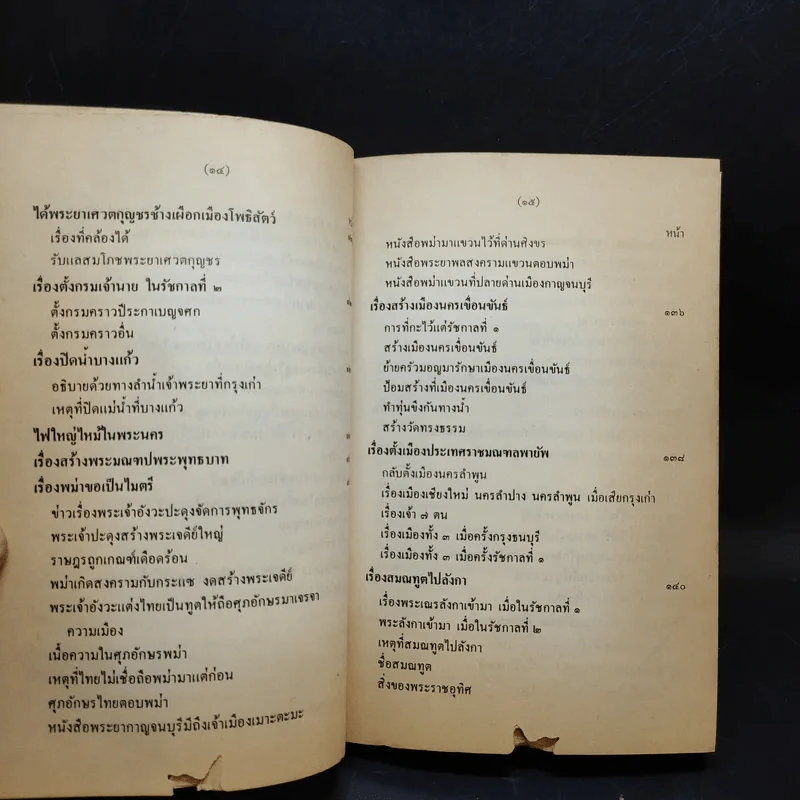 (๑๔)
ได้พระยาเศวตกุญชรช้างเผือกเมืองโพธิสัตว์
เรื่องที่คล้องได้
รับแลสมโภชพระยาเศวตกุญชร
เรื่องตั้งกรมเจ้านาย ในรัชกาลที่ ๒
ตั้งกรมคราวปีระกาเบญจศก
ตั้งกรมคราวอื่น
เรื่องปิดน้ำบางแก้ว
อธิบายด้วยทางลำน้ำเจ้าพระยาที่กรุงเก่า
เหตุที่ปิดแม่น้ำที่บางแก้ว
ไฟใหญ่ไหม้ในพระนคร
เรื่องสร้างพระมณฑปพระพุทธบาท
เรื่องพม่าขอเป็นไมตรี
ข่าวเรื่องพระเจ้าอังวะปะดุงจัดการพุทธจักร
พระเจ้าปะดุงสร้างพระเจดีย์ใหญ่
ราษฎรถูกเกณฑ์เดือดร้อน
พม่าเกิดสงครามกับกระแซ งดสร้างพระเจดีย์
พระเจ้าอังวะแต่งไทยเป็นทูตให้ถือศุภอักษรมาเจรจา
ความเมือง
เนื้อความในศุภอักษรพม่า
เหตุที่ไทยไม่เชื่อถือพม่ามาแต่ก่อน
ศุภอักษรไทยตอบพม่า
หนังสือพระยากาญจนบุรีมีถึงเจ้าเมืองเมาะตะมะ
(๑๕)
หน้า
หนังสือพม่ามาแขวนไว้ที่ด่านสิงขร
หนังสือพระยาพลสงครามแขวนตอบพม่า
หนังสือพม่าแขวนที่ปลายด่านเมืองกาญจนบุรี
เรื่องสร้างเมืองนครเขื่อนขันธ์ ๑๓๖
การที่กะไว้แต่รัชกาลที่ ๑
สร้างเมืองนครเขื่อนขันธ์
ย้ายครัวมอญมารักษาเมืองนครเขื่อนขันธ์
ป้อมสร้างที่เมืองนครเขื่อนขันธ์
ทำทุ่นขึงกันทางน้ำ
สร้างวัดทรงธรรม
เรื่องตั้งเมืองประเทศราชมณฑลพายัพ ๑๓๘
กลับตั้งเมืองนครลำพูน
เรื่องเมืองเชียงใหม่ นครลำปาง นครลำพูน เมื่อเสียกรุงเก่า
เรื่องเจ้า ๗ ตน
เรื่องเมืองทั้ง ๓ เมื่อครั้งกรุงธนบุรี
เรื่องเมืองทั้ง ๓ เมื่อครั้งรัชกาลที่ ๑
เรื่องสมณทูตไปลังกา ๑๔๐
เรื่องพระเณรลังกาเข้ามา เมื่อในรัชกาลที่ ๑
พระลังกาเข้ามา เมื่อในรัชกาลที่ ๒
เหตุที่สมณทูตไปลังกา
ชื่อสมณทูต
สิ่งของพระราชอุทิศ